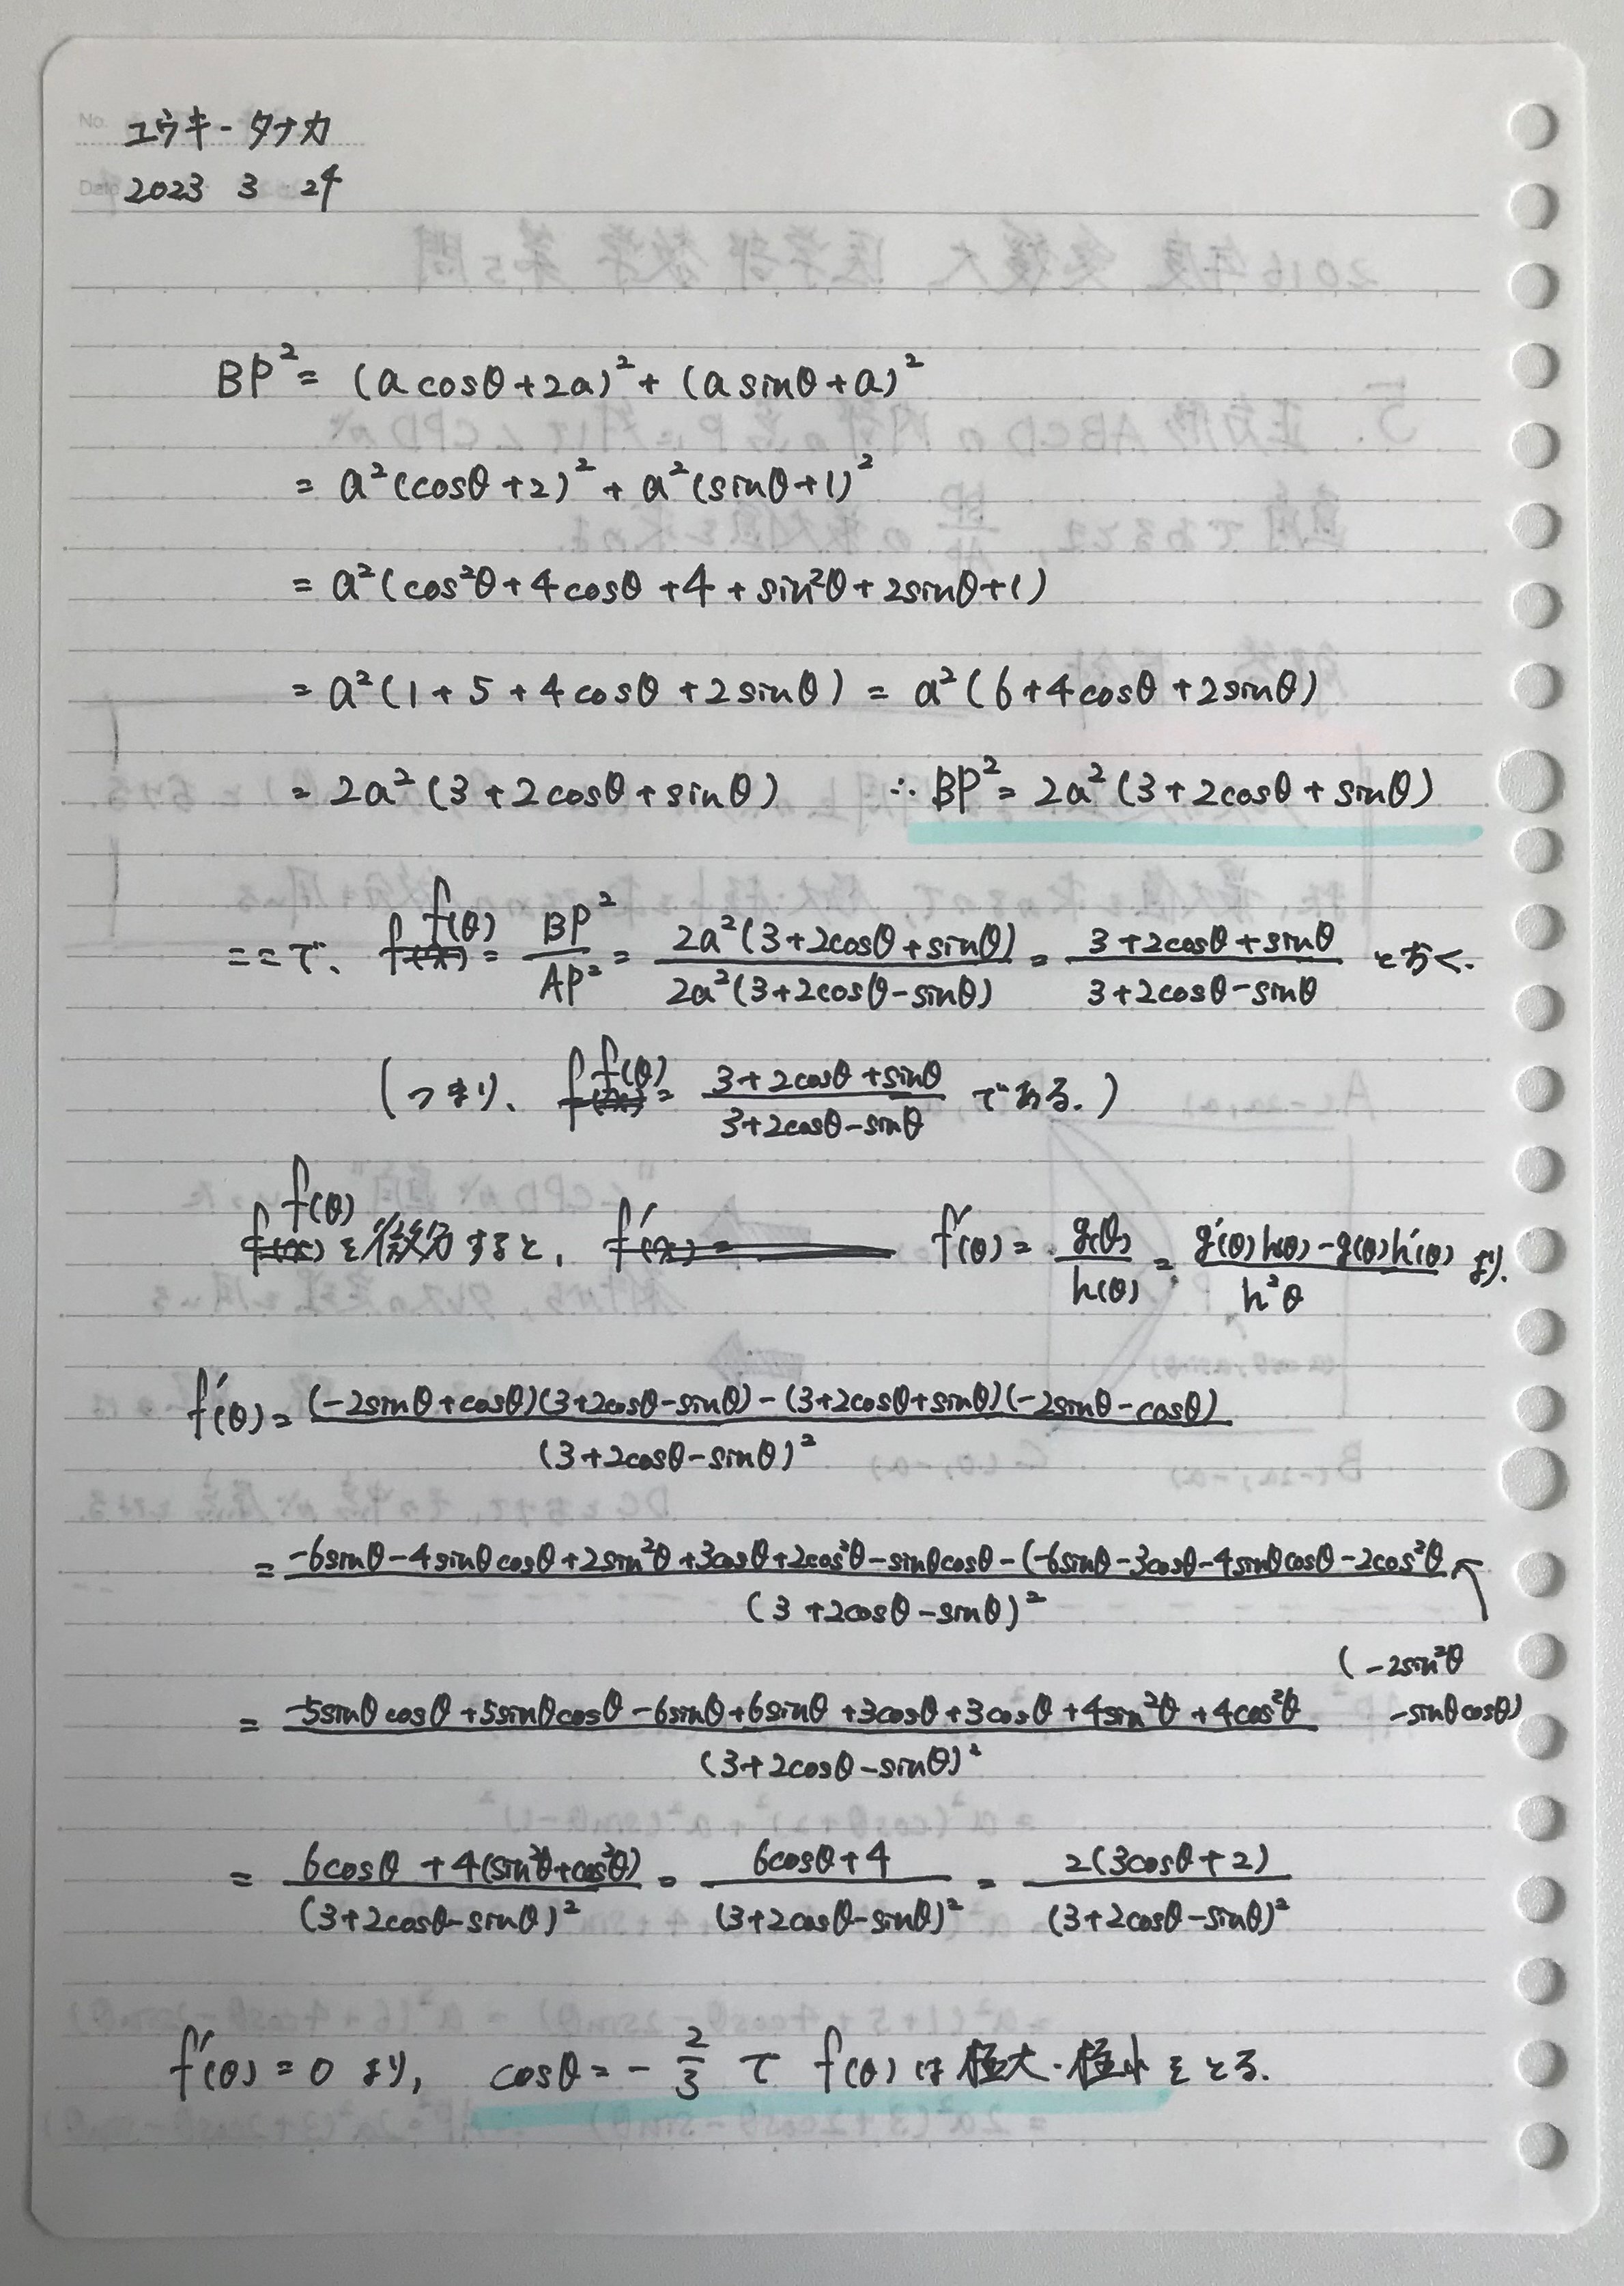 No. ユウキ-タナカ
Date 2023 3 24
BP² = (a cosθ+2a)² + (a sinθ+a)²
= a²(cosθ+2)² + a²(sinθ+1)²
= a²(cos²θ+4cosθ+4+sin²θ+2sinθ+1)
= a²(1+5+4cosθ+2sinθ) = a²(6+4cosθ+2sinθ)
= 2a²(3+2cosθ+sinθ) ∴ BP² = 2a²(3+2cosθ+sinθ)
ここで、 f(θ) = BP²/AP² = 2a²(3+2cosθ+sinθ)/2a²(3+2cosθ-sinθ) = 3+2cosθ+sinθ/3+2cosθ-sinθ とおく.
(つまり、 f(θ) = 3+2cosθ+sinθ/3+2cosθ-sinθ である.)
f(θ)
f(x) を微分すると, f'(x) = f'(θ) = g(θ)/h(θ) = g'(θ)h(θ)-g(θ)h'(θ)/h²θ より.
f'(θ) = (-2sinθ+cosθ)(3+2cosθ-sinθ)-(3+2cosθ+sinθ)(-2sinθ-cosθ)/(3+2cosθ-sinθ)²
= -6sinθ-4sinθcosθ+2sin²θ+3cosθ+2cos²θ-sinθcosθ-(-6sinθ-3cosθ-4sinθcosθ-2cos²θ/(3+2cosθ-sinθ)²
(-2sin²θ
-sinθcosθ)
= -5sinθcosθ+5sinθcosθ-6sinθ+6sinθ+3cosθ+3cosθ+4sin²θ+4cos²θ/(3+2cosθ-sinθ)²
= 6cosθ+4(sin²θ+cos²θ)/(3+2cosθ-sinθ)² = 6cosθ+4/(3+2cosθ-sinθ)² = 2(3cosθ+2)/(3+2cosθ-sinθ)²
f'(θ)=0 より, cosθ = -2/3 で f(θ) は極大・極小をとる.